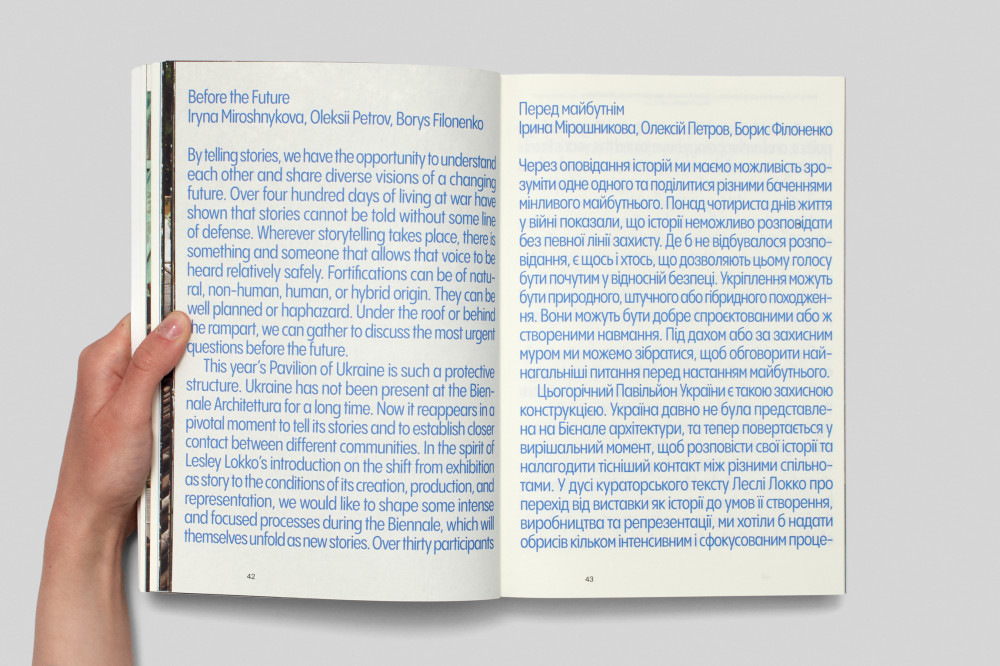 Before the Future
Iryna Miroshnykova, Oleksii Petrov, Borys Filonenko
By telling stories, we have the opportunity to understand
each other and share diverse visions of a changing
future. Over four hundred days of living at war have
shown that stories cannot be told without some line
of defense. Wherever storytelling takes place, there is
something and someone that allows that voice to be
heard relatively safely. Fortifications can be of natu-
ral, non-human, human, or hybrid origin. They can be
well planned or haphazard. Under the roof or behind
the rampart, we can gather to discuss the most urgent
questions before the future.
This year's Pavilion of Ukraine is such a protective
structure. Ukraine has not been present at the Bien-
nale Architettura for a long time. Now it reappears in a
pivotal moment to tell its stories and to establish closer
contact between different communities. In the spirit of
Lesley Lokko's introduction on the shift from exhibition
as story to the conditions of its creation, production, and
representation, we would like to shape some intense
and focused processes during the Biennale, which will
themselves unfold as new stories. Over thirty participants
42
Перед майбутнім
Ірина Мірошникова, Олексій Петров, Борис Філоненко
Через оповідання історій ми маємо можливість зро-
зуміти одне одного та поділитися різними баченнями
мінливого майбутнього. Понад чотириста днів життя
у війні показали, що історії неможливо розповідати
без певної лінії захисту. Де б не відбувалося розпо-
відання, є щось і хтось, що дозволяють цьому голосу
бути почутим у відносній безпеці. Укріплення можуть
бути природного, штучного або гібридного походжен-
ня. Вони можуть бути добре спроєктованими або ж
створеними навмання. Під дахом або за захисним
муром ми можемо зібратися, щоб обговорити най-
нагальніші питання перед настанням майбутнього.
Цьогорічний Павільйон України є такою захисною
конструкцією. Україна давно не була представле-
на на Бієнале архітектури, та тепер повертається у
вирішальний момент, щоб розповісти свої історії та
налагодити тісніший контакт між різними спільно-
тами. У дусі кураторського тексту Леслі Локко про
перехід від виставки як історії до умов її створення,
виробництва та репрезентації, ми хотіли б надати
обрисів кільком інтенсивним і сфокусованим проце-
43